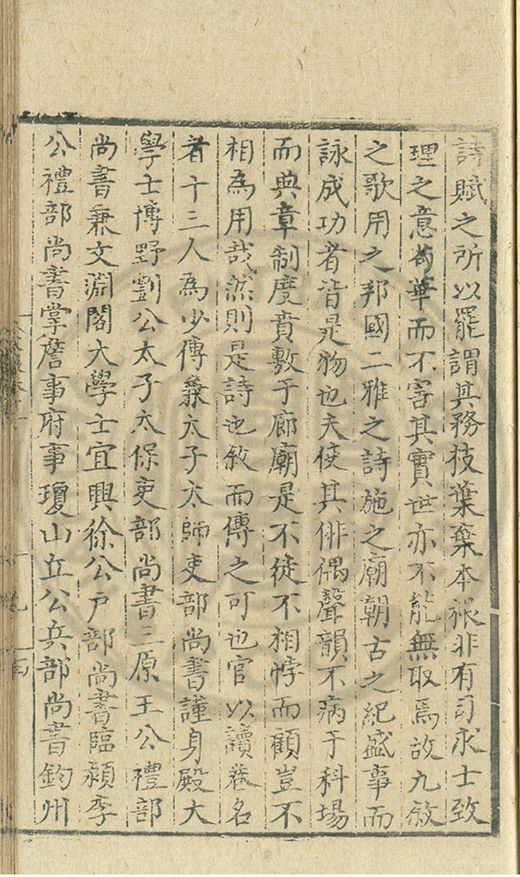 詩賦之所以罷謂其務枝葉棄本根非有司求士致
理之意茍華而不害其實世亦不能無取焉故九敘
之歌用之邦國二雅之詩施之廟朝古之紀盛事而
詠成功者皆是物也夫使其俳偶聲韻不病于科場
而典章制度賁敷于廊廟是不徒不相悖而顧豈不
相為用哉然則是詩也敘而傳之可也官以讀卷名
者十三人為少傅兼太子太師吏部尚書謹身殿大
學士博野劉公太子太保吏部尚書三原王公禮部
尚書兼文淵閣大學士宜興徐公戶部尚書臨潁李
公禮部尚書掌詹事府事瓊山丘公兵部尚書鈞州